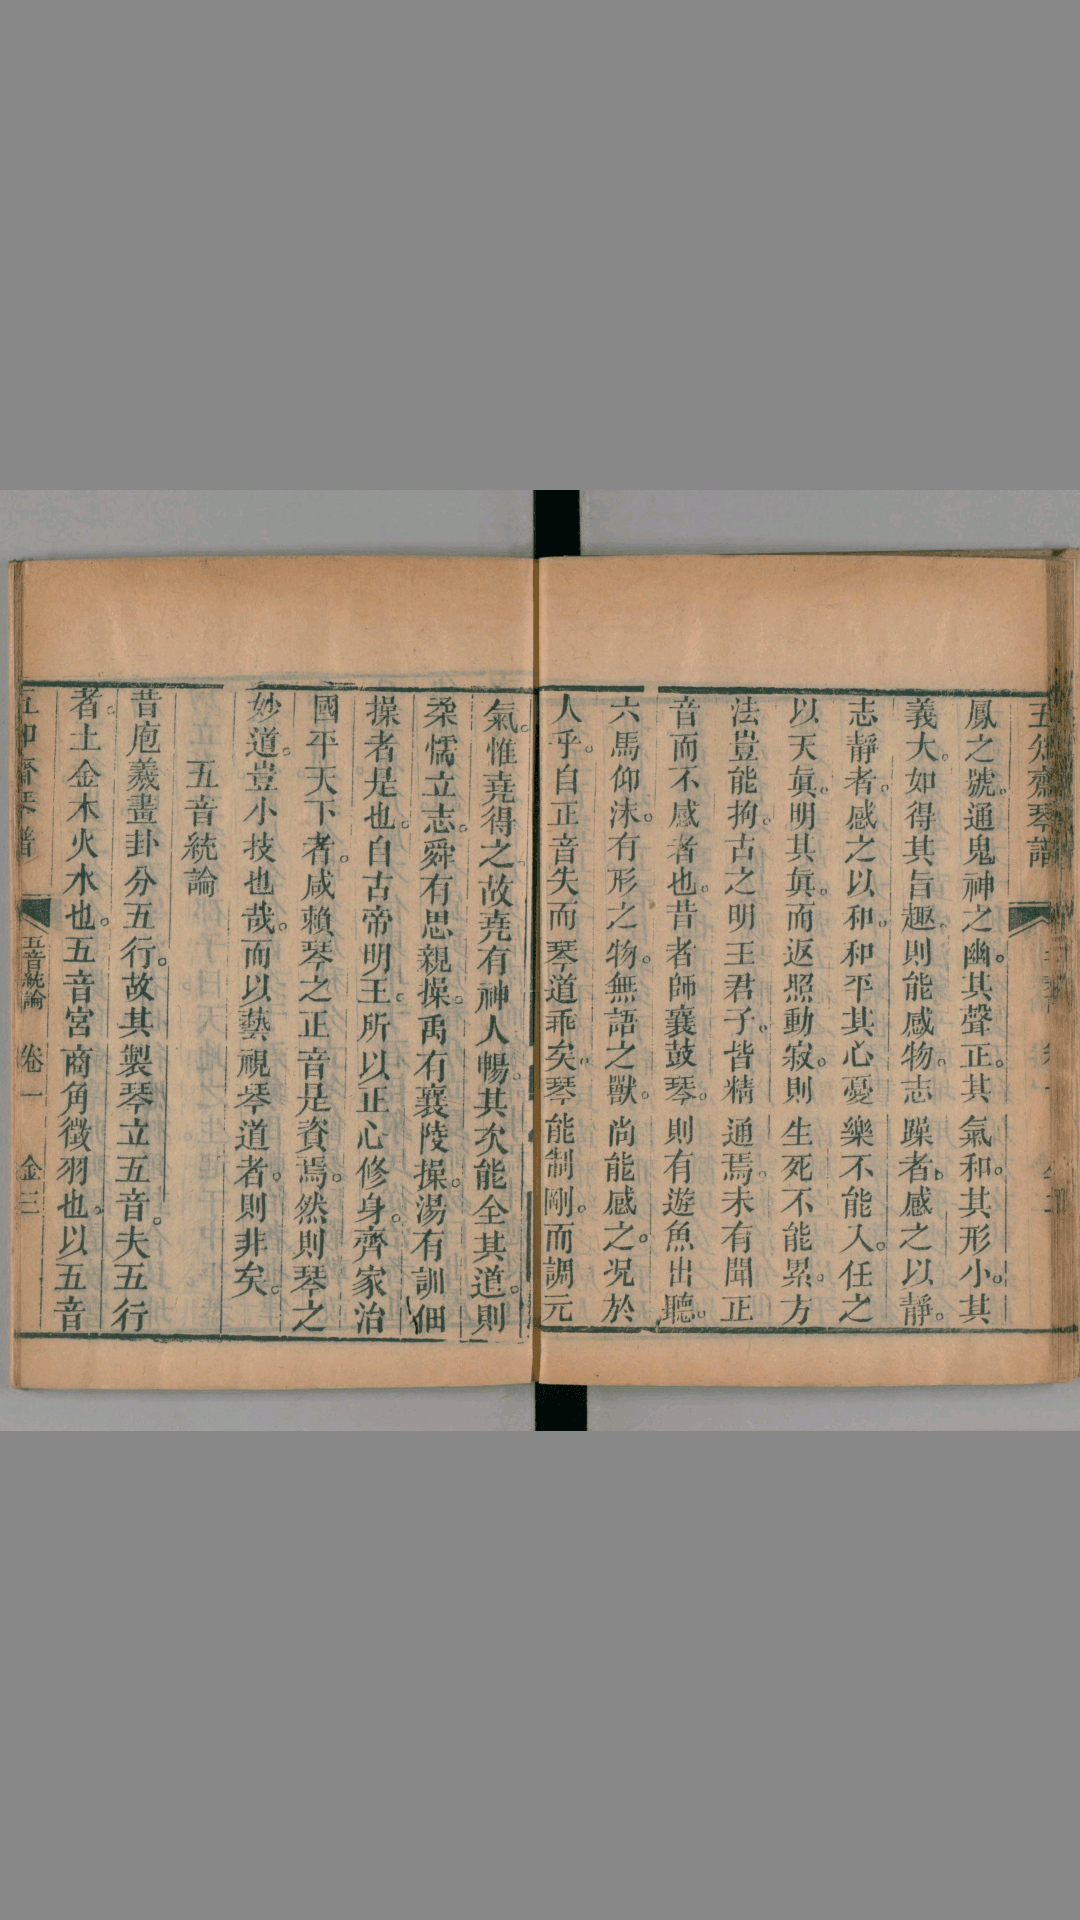 齋琴譜
鳳之號。通鬼神之幽。其聲正。其氣和。其形小。其
義大。如得其旨趣。則能感物。志躁者。感之以靜。
志靜者。感之以和。和平其心。憂樂不能入。任之
以天眞。明其眞。而返照動寂。則生死不能累。方
法豈能拘。古之明王君子。皆精通焉。未有聞正
音而不感者也。昔者師襄鼓琴。則有遊魚出聽。
六馬仰沫。有形之物。無語之獸。尚能感之。况於
人乎。自正音失而琴道乖矣。琴能制剛。而調元
氣。惟堯得之。故堯有神人暢。其次能全其道。則
柔懦立志。舜有思親操。禹有襄陵操。湯有訓佃
操者是也。自古帝明王。所以正心修身。齊家治
國平天下者。咸賴琴之正音是資焉。然則琴之
妙道。豈小技也哉。而以藝視琴道者。則非矣。
五音統論
昔庖羲畫卦分五行。故其製琴立五音。夫五行
者。土金木火水也。五音宮商角徵羽也。以五音
齋琴譜
五音統論
卷一
金三